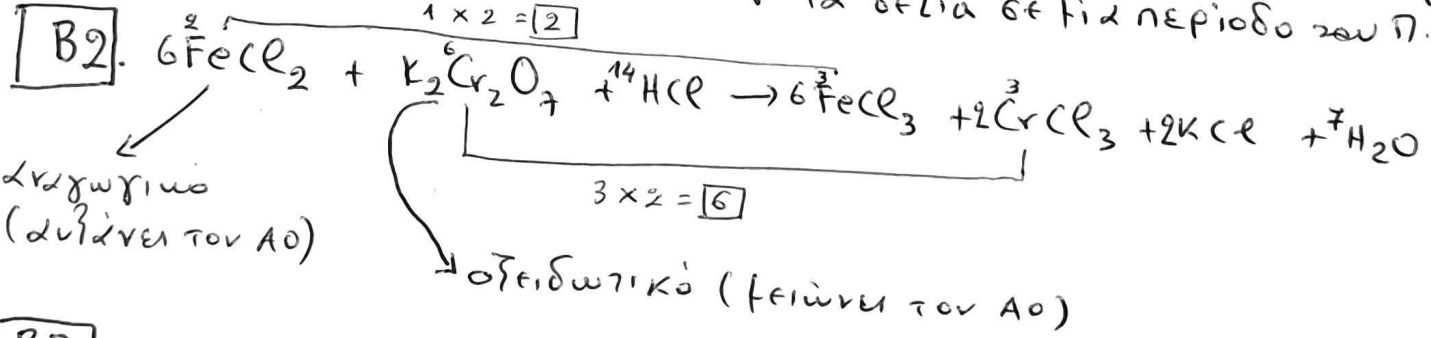 τα οξέα σε μια περίοδο του Π.
1 × 2 = 2
B2. 6FeCl₂ + K₂Cr₂O₇ + 14HCl → 6FeCl₃ + 2CrCl₃ + 2KCl + 7H₂O
2 6 3 3
αναγωγικό
3 × 2 = 6
(αυξάνει τον ΑΟ)
οξειδωτικό (μειώνει τον ΑΟ)